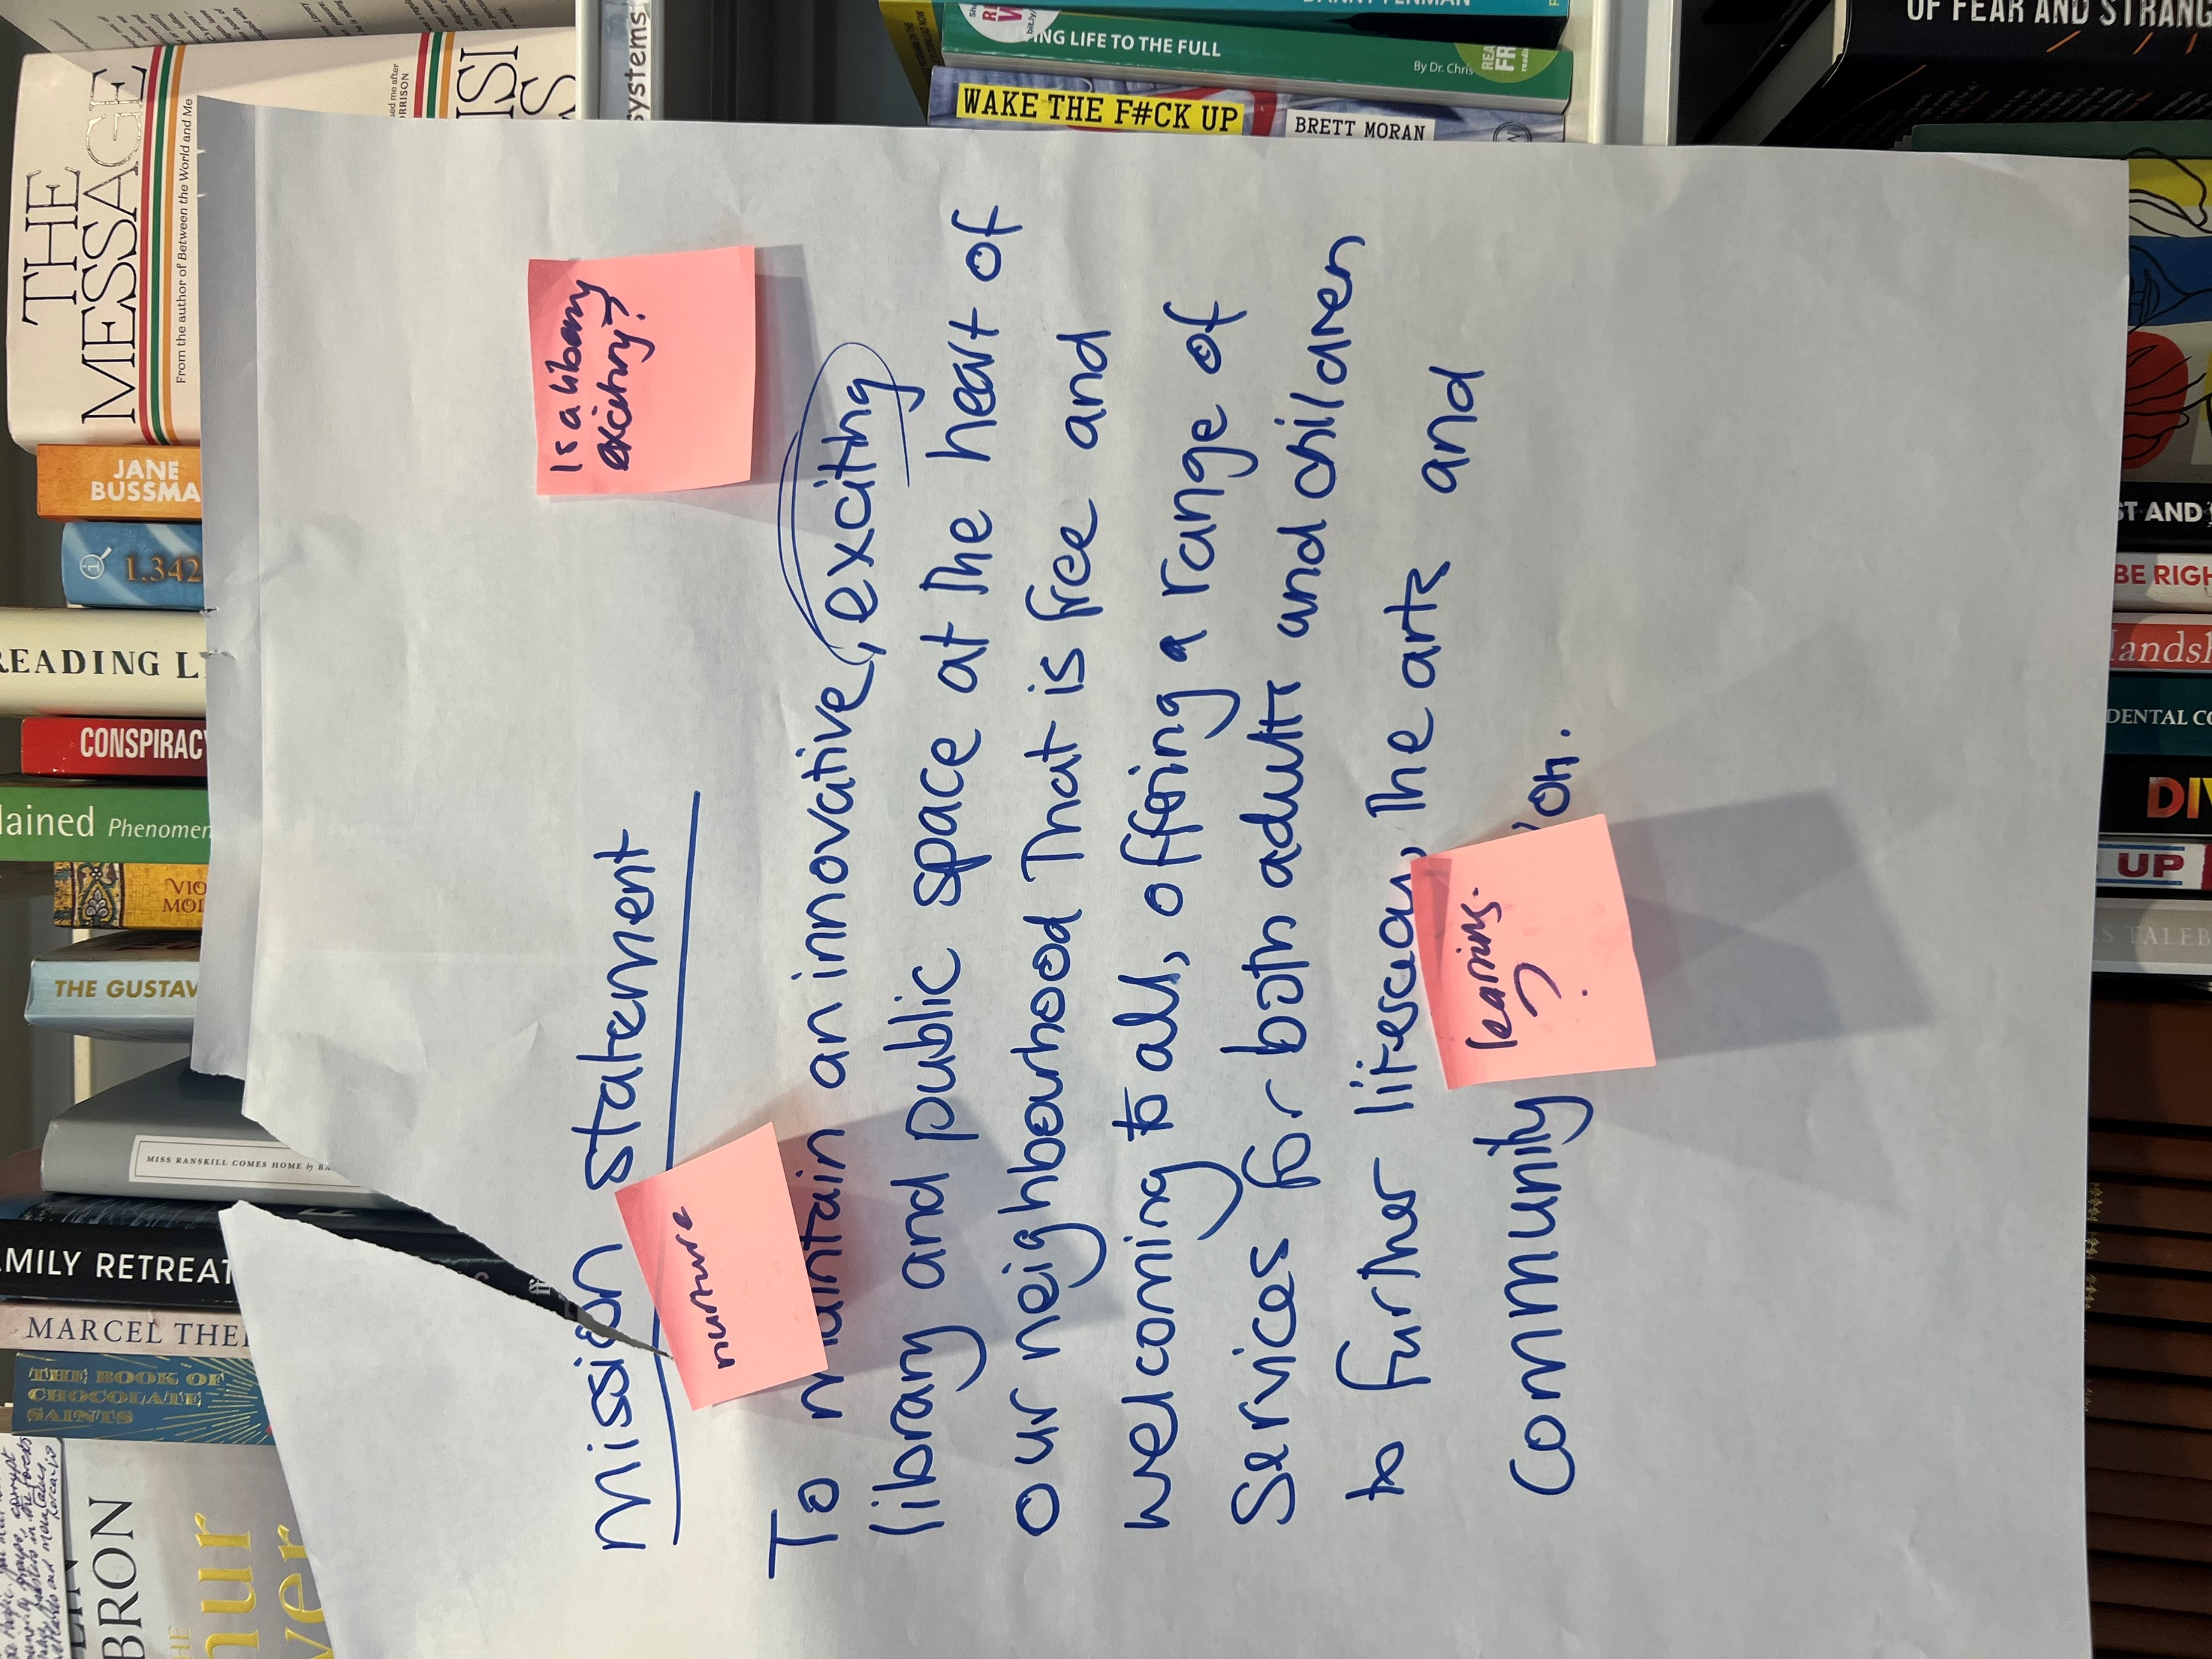 mission statement
Is a library
exciting?
nurture
To maintain an innovative, exciting
library and public space at the heart of
our neighbourhood that is free and
welcoming to all, offering a range of
Services for both adults and children
to further literacy, the arts and
Community
learning.
?
THE
MESSAGE
From the author of Between the World and Me
JANE
BUSSMA
1.342
READING L
CONSPIRACY
lained Phenomen
VIO
MOD
THE GUSTAV
MISS RANSKILL COMES HOME by BA
AMILY RETREAT
MARCEL THE
THE BOOK OF
CHOCOLATE
SAINTS
BRON
systems
LIVING LIFE TO THE FULL
By Dr. Chris
WAKE THE F#CK UP
BRETT MORAN
OF FEAR AND STRANG
ST AND
BE RIGH
lands
DENTAL CO
DIV
UP
S TALEB